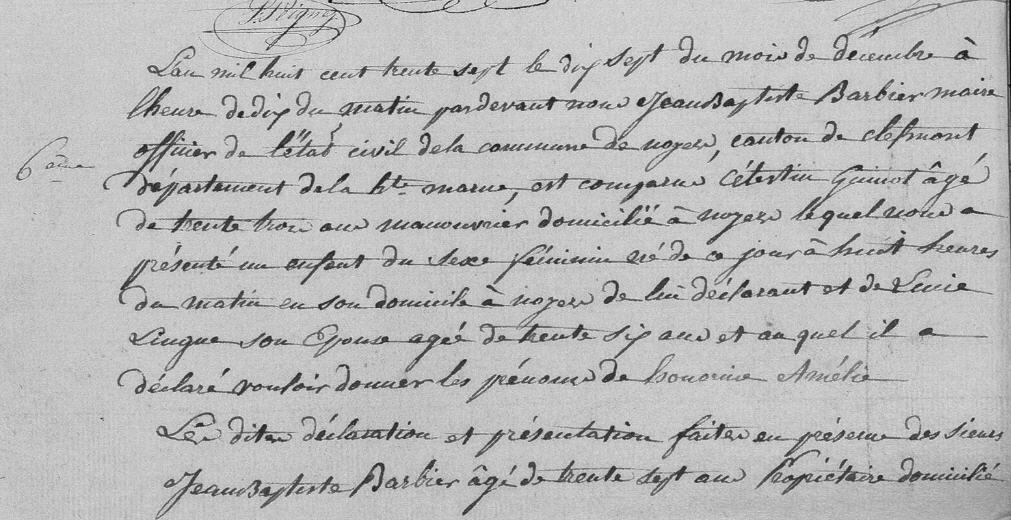 Lan mil huit cent trente sept le dix sept du mois de décembre à
lheure de dix du matin pardevant nous Jean Baptiste Barbier maire
officier de l'état civil dela commune de noyers, canton de clefmont
6eme
département dela hte marne, est comparu Célestin Guinot âgé
de trente trois ans manouvrier domicilié à noyers lequel nous a
présenté un enfant du sexe féminin né de ce jour à huit heures
du matin en son domicile à noyers de lui déclarant et de Lucie
Lingue son Epouse agée de trente six ans et au quel il a
déclaré vouloir donner les prénoms de honorine Amélie
Les dites déclaration et présentation faites en présence des sieurs
Jean Baptiste Barbier âgé de trente sept ans Propriétaire domicilié